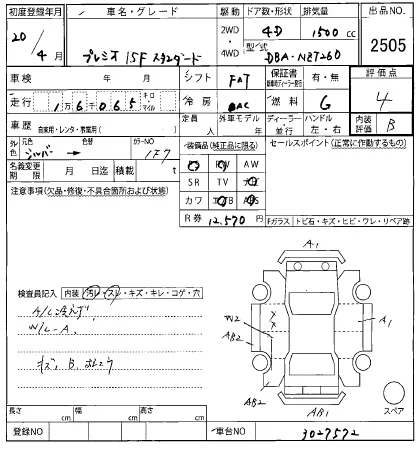 初度登録年月 車名・グレード 駆動 ドア数・形状 排気量 出品NO.
20年 4月 プレミオ 15F スタンダード 2WD 4WD 4D 1500 cc 2505
型式 DBA-NZT260
車検 年 月 シフト FAT 保証書 有・無 評価点
走行 1万6千065 キロ マイル 冷房 AAC 燃料 G 4
車歴 自家用・レンタ・教習用( ) 定員 人 外車モデル 年 ディーラー 並行 ハンドル 左・右 内装評価 B
外色 元色 シルバー → 色替 カラーNO 1F7 装備品(純正品に限る) セールスポイント(正常に作動するもの)
名義変更期限 月 日迄 積載 t
AW
SR TV
カワ
R券 12,570円
注意事項(欠品・修復・不具合箇所および状態)
Fガラス トビ石・キズ・ヒビ・ワレ・リペア跡
検査員記入 内装 汚レ・スレ・キズ・キレ・コゲ・穴
W/L-A.
A1
A1
W2
AB2
AB2
AB1
スペア
長さ cm 幅 cm 高さ cm
登録NO 車台NO 3027572